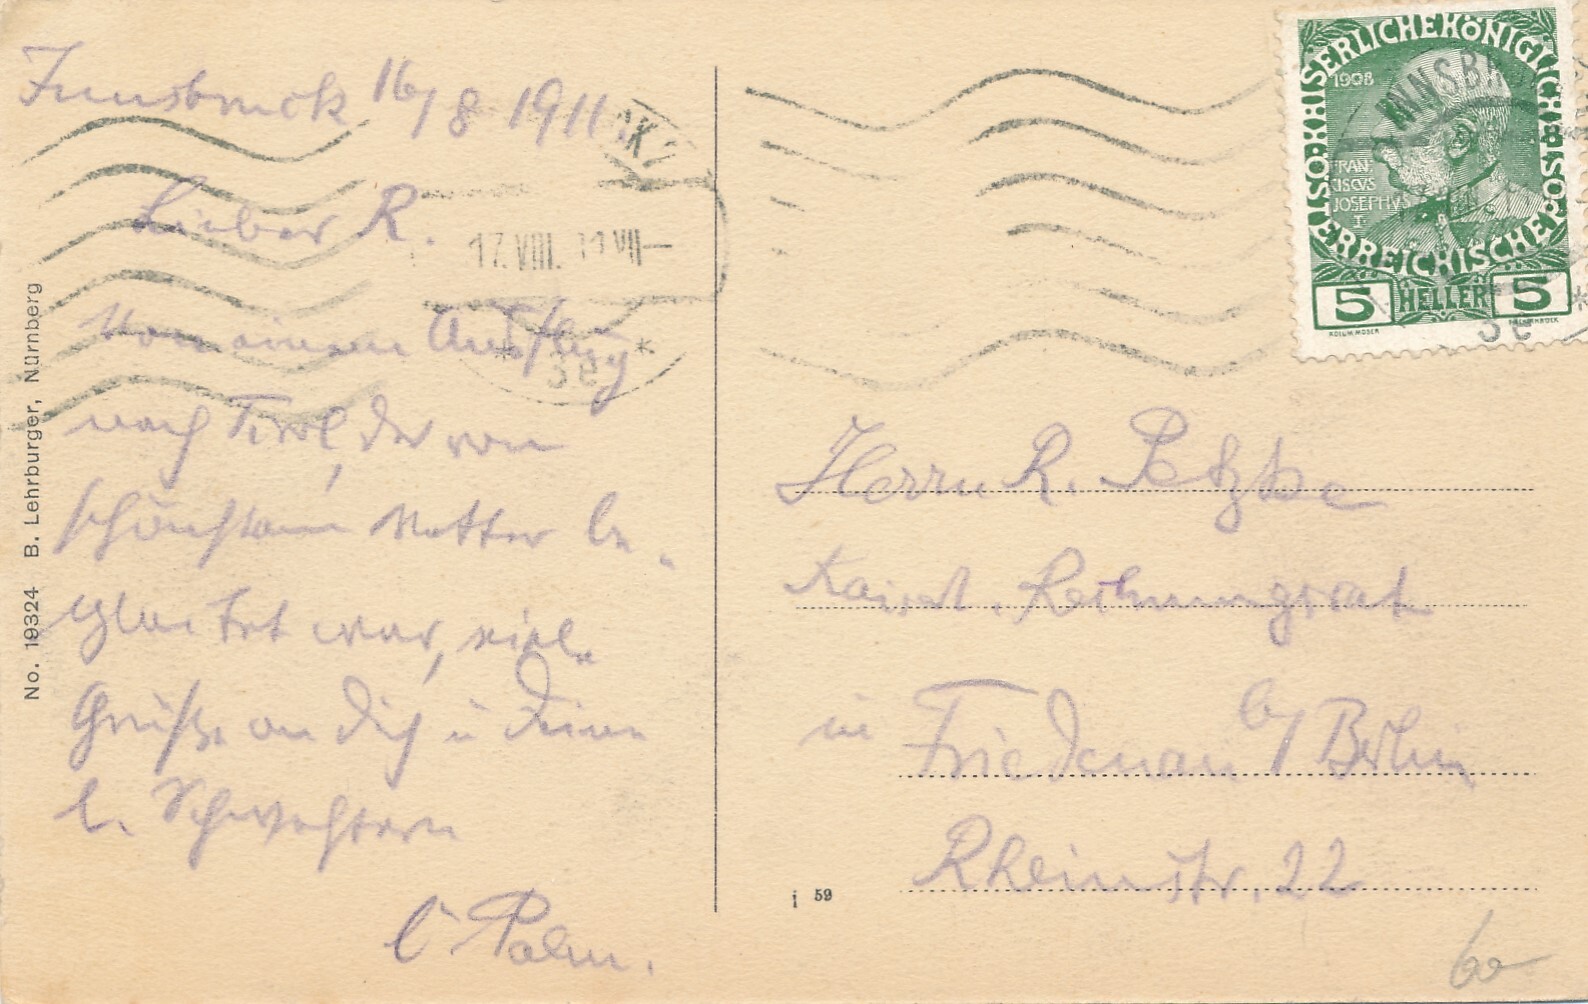 Innsbruck 16/8 1911.
Lieber R.
Von einem Ausflug
nach Tirol, der von
schönstem Wetter be-
gleitet war, viele
Grüße an Dich u Deine
l. Schwestern
Palm.
17. VIII. 11 VII—
* 3e *
No. 19324 B. Lehrburger, Nürnberg
i 59
KAISERLICHE KÖNIGLICHE
ÖSTERREICHISCHE POST
1908
INNSBR
FRAN
CISCVS
JOSEPHVS
I.
5 HELLER 5
KOLOM. MOSER
3e
Herrn R. Petzke
Kaiserl. Rechnungsrat
in Friedenau b/ Berlin
Rheinstr. 22
60